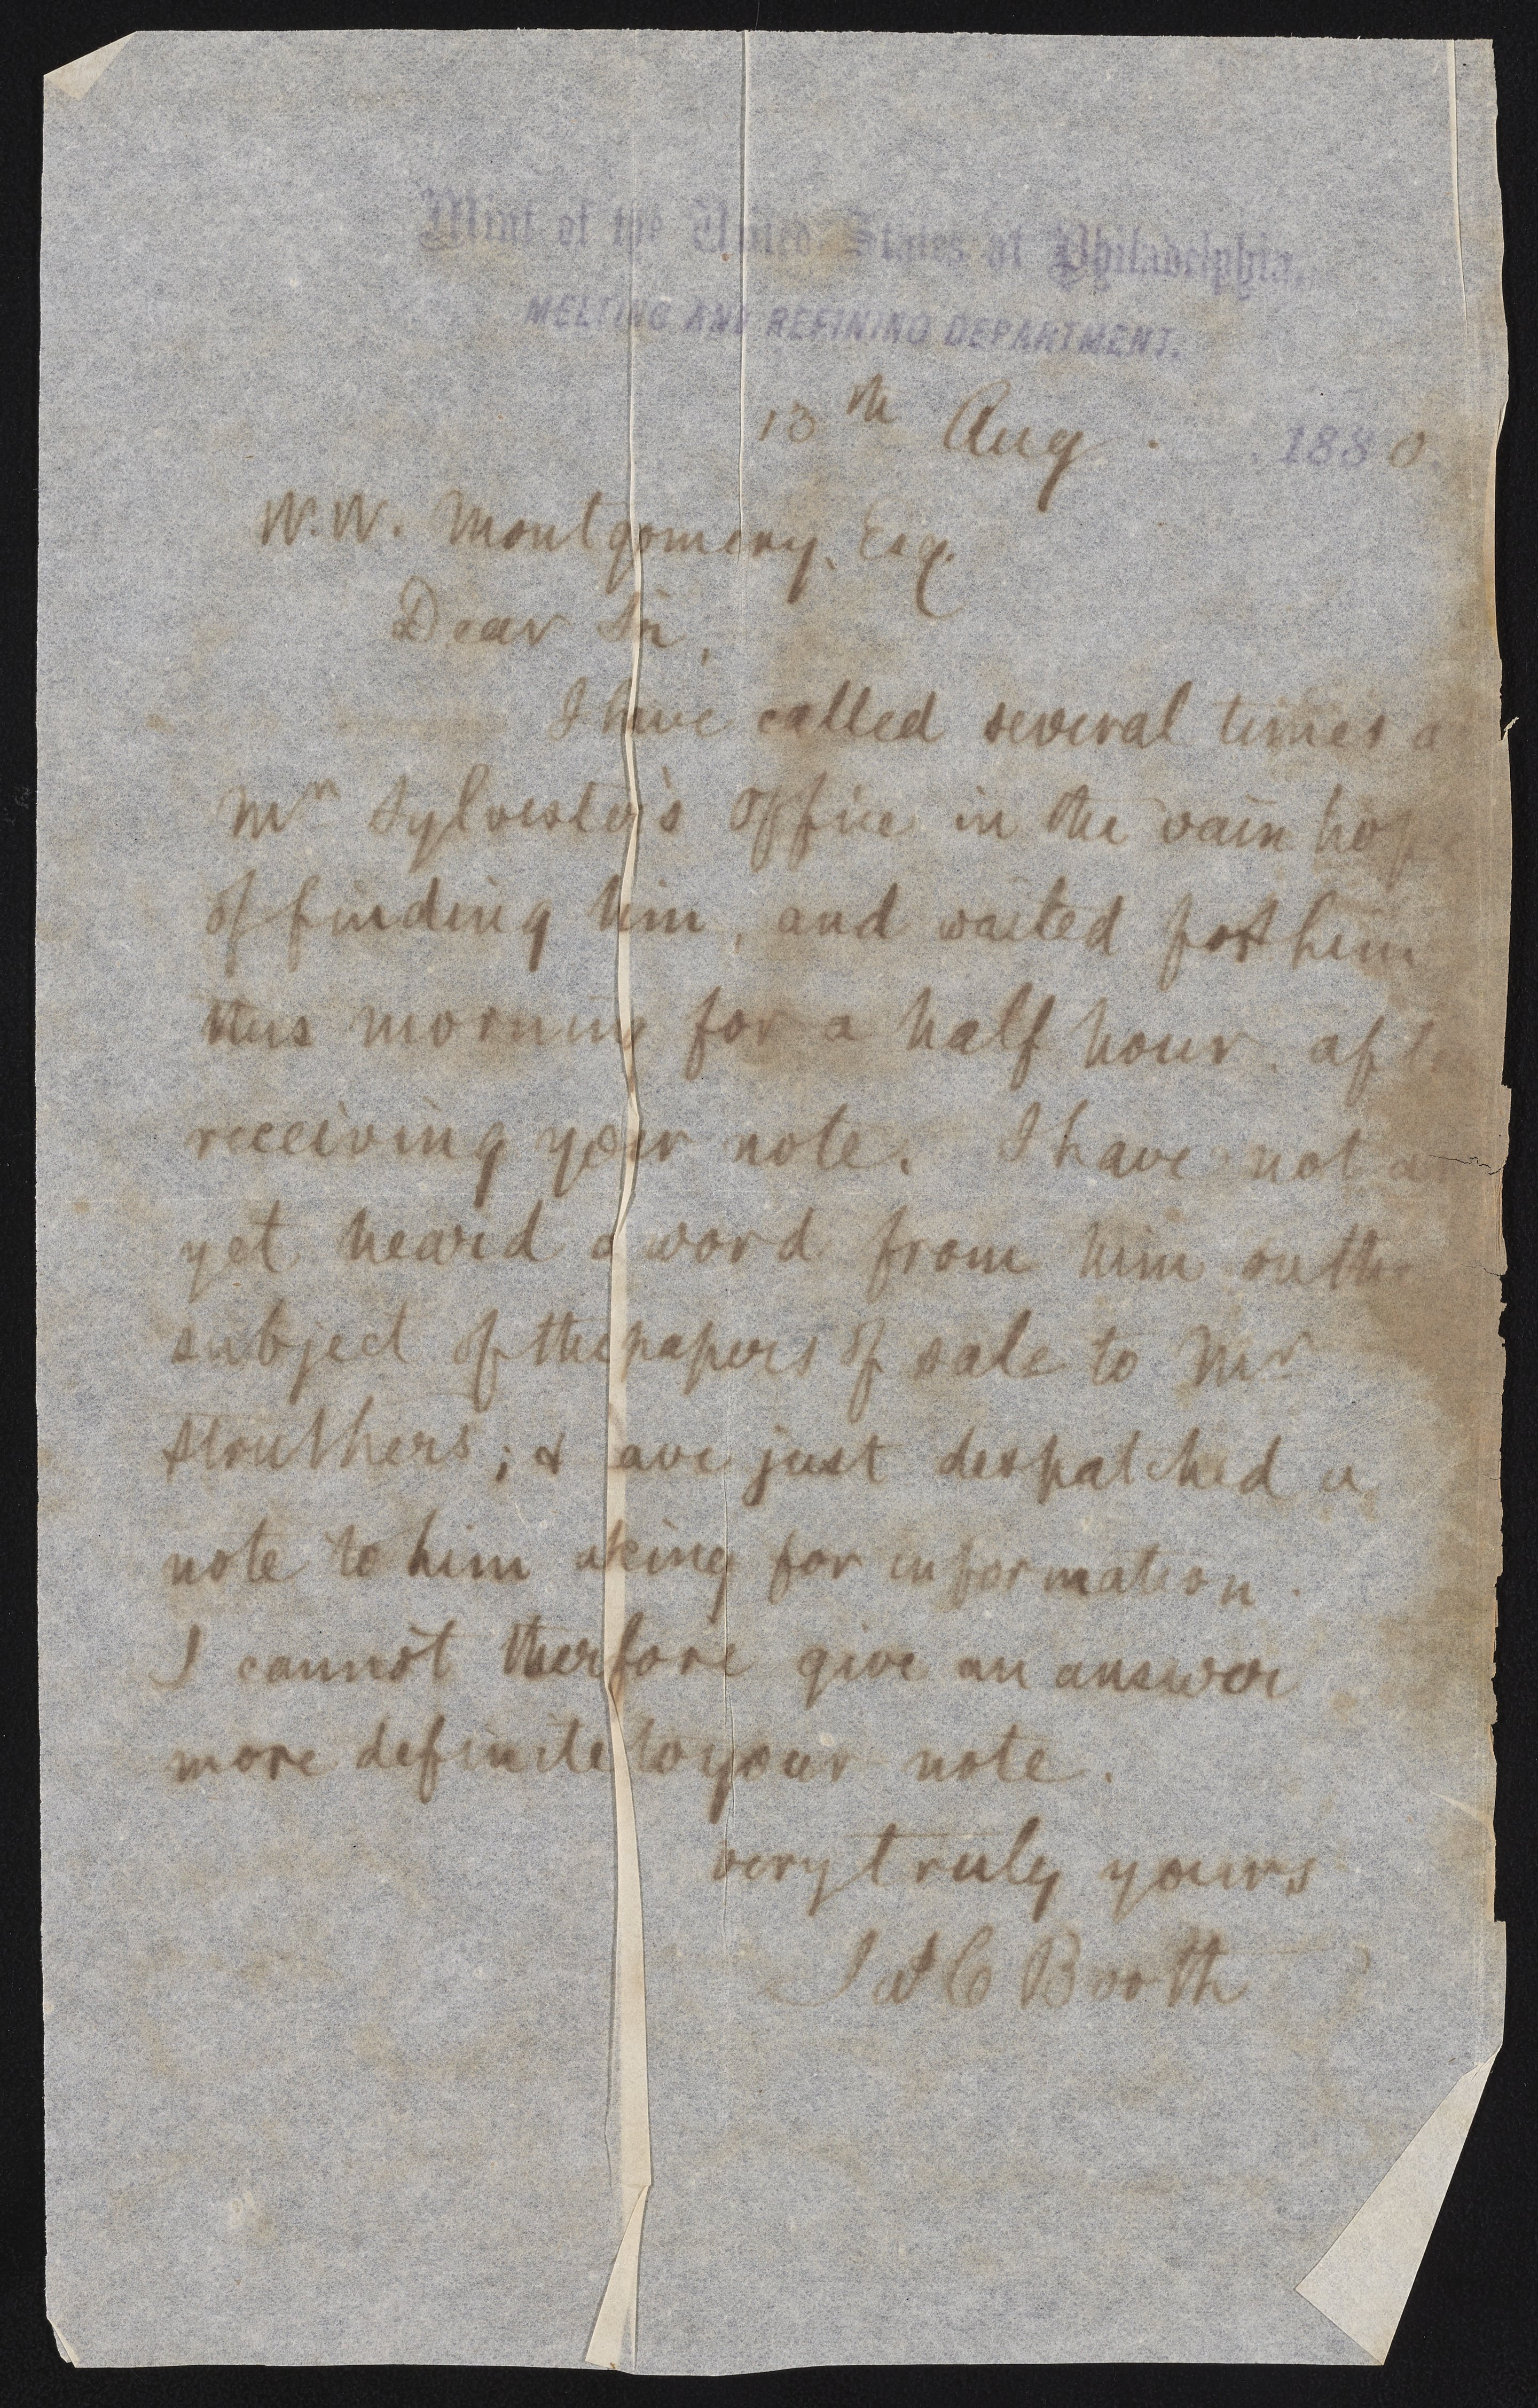 Mint of the United States at Philadelphia,
MELTING AND REFINING DEPARTMENT.
13th Aug. 1880.
W. W. Montgomery, Esq.
Dear Sir,
I have called several times a
Mr Sylvester's Office in the vain hop
of finding him, and waited for him
this morning for a half hour aft
receiving your note. I have not a
yet heard a word from him on the
subject of the papers of sale to Mr
Struthers; & have just despatched a
note to him asking for information.
I cannot therfore give an answer
more definite to your note.
very truly yours
Jas C Booth